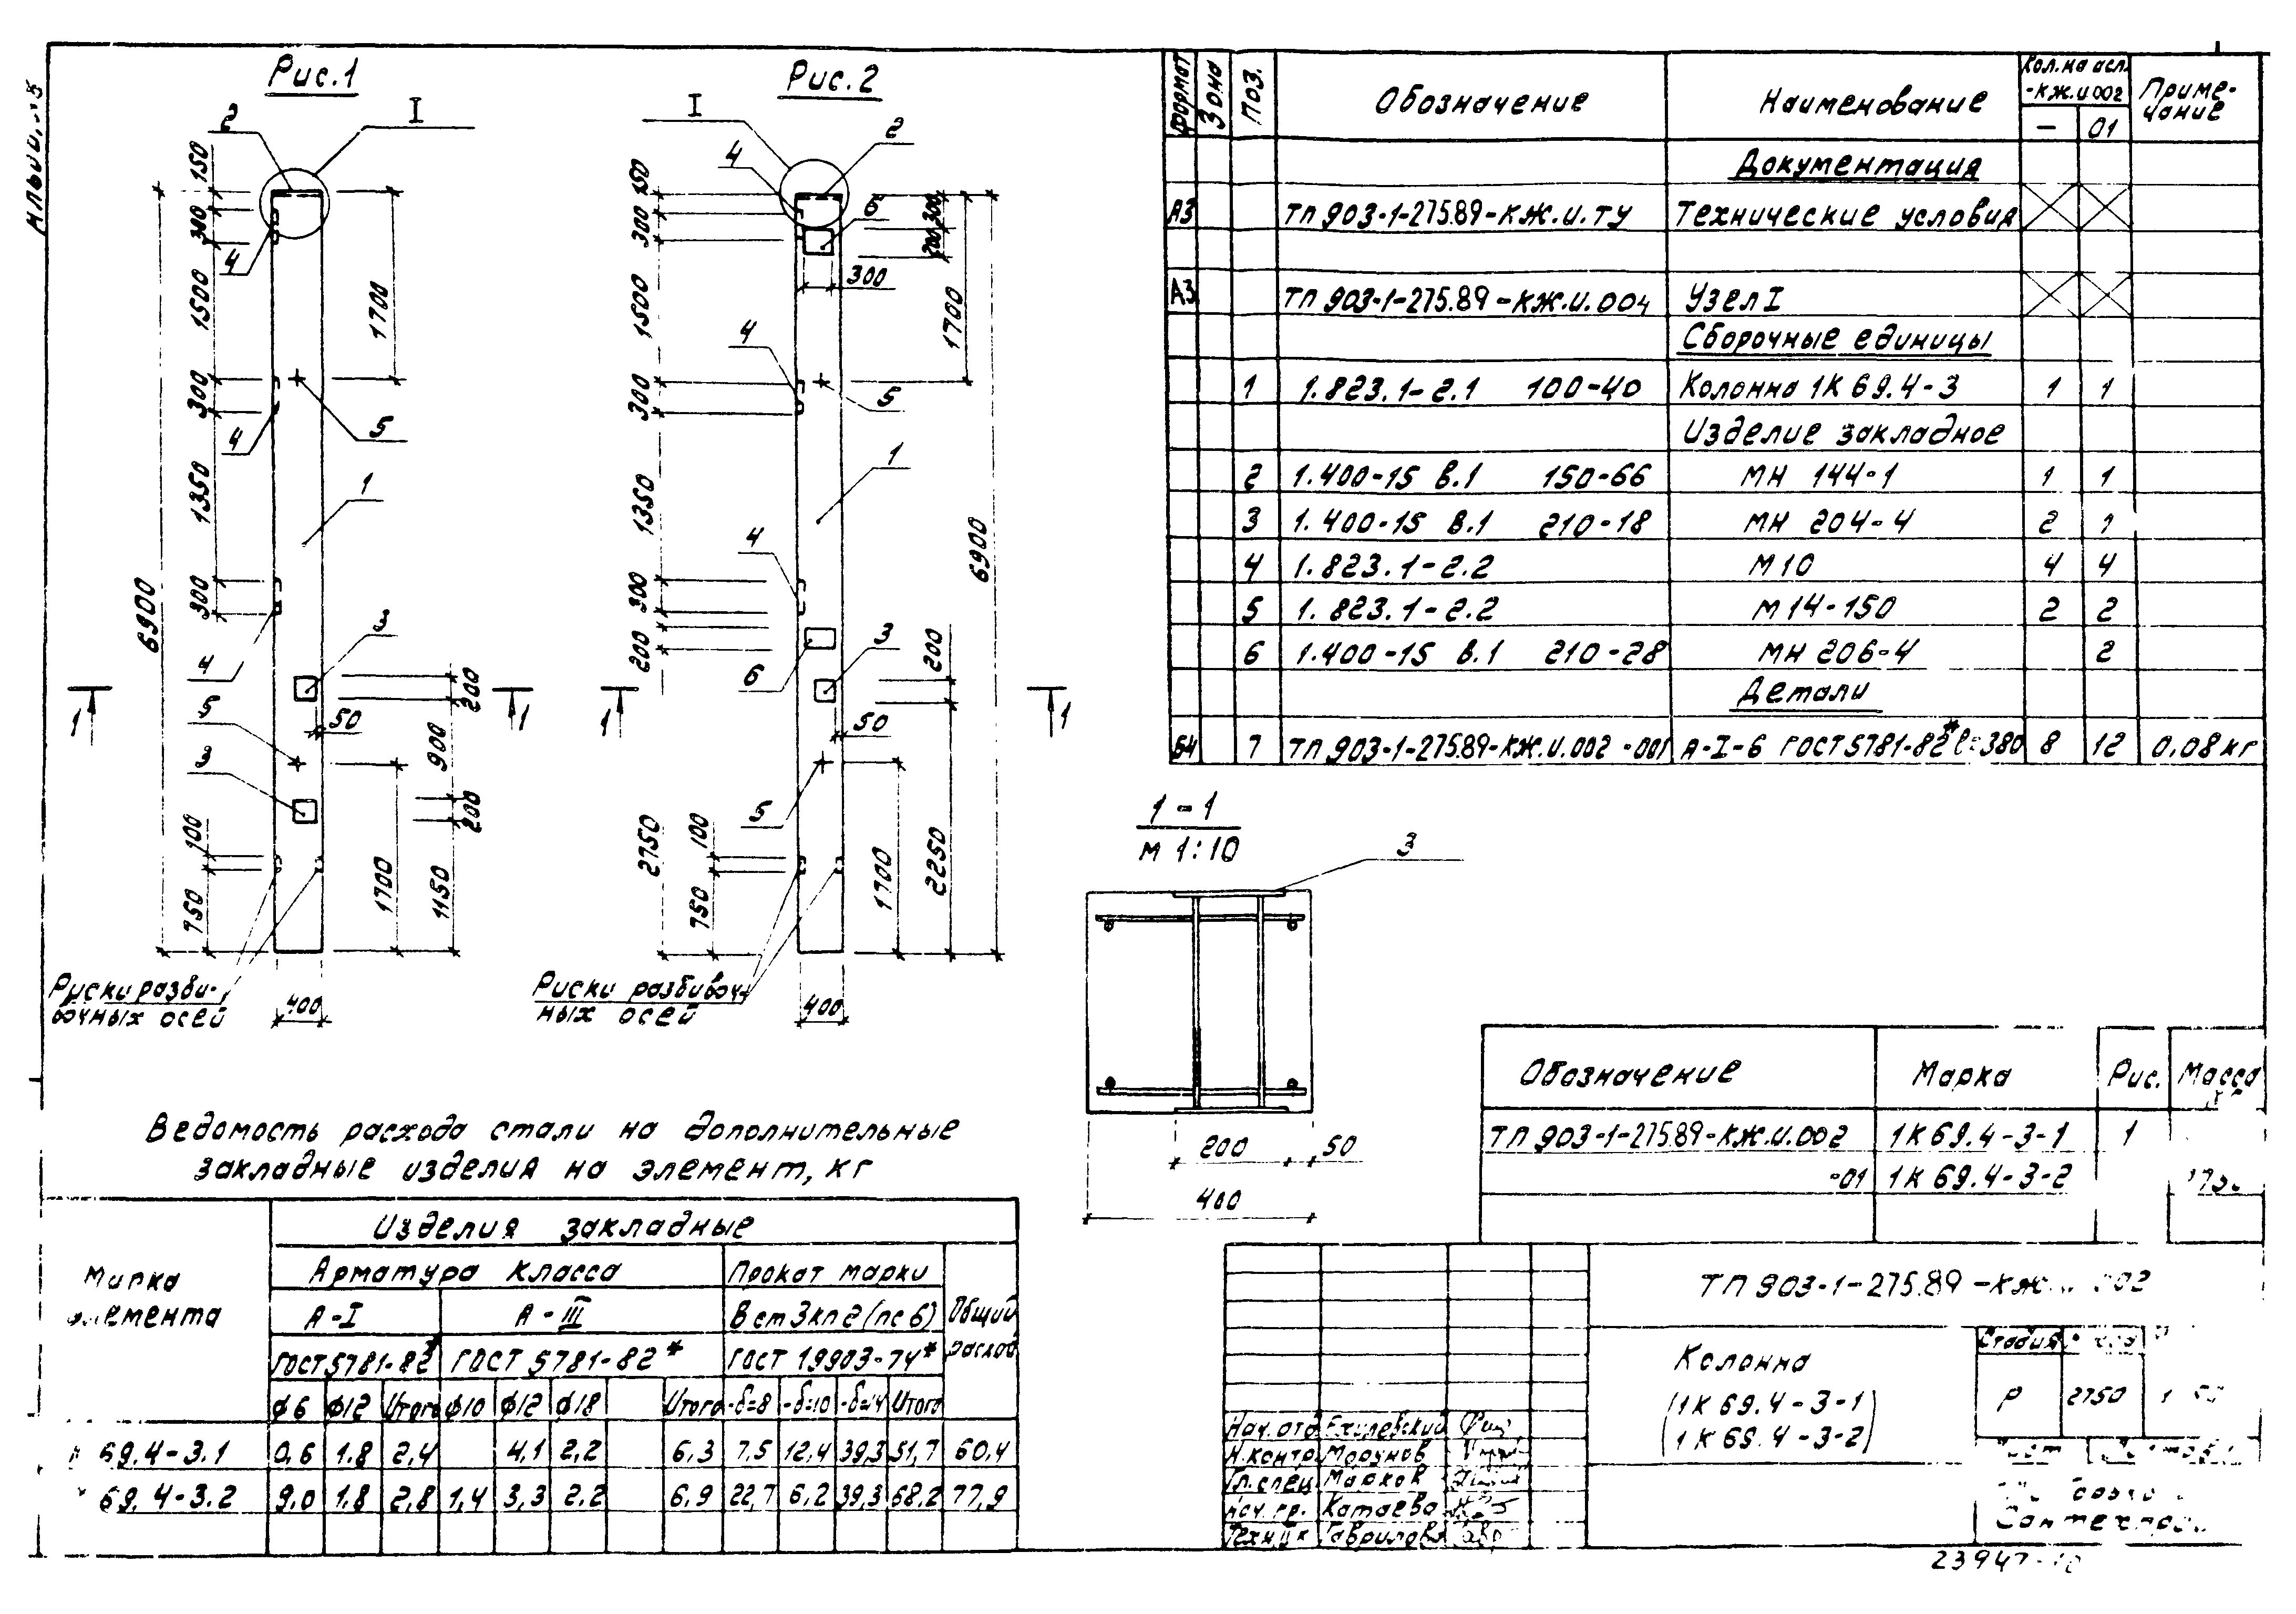 Рис.1
2
I
150
300
4
1500
1700
300
4
5
1350
1
300
6900
3
4
200
5
1
1
50
900
3
200
100
1700
1150
750
Риски разби-
вочных осей
400
Рис.2
I
2
4
150
300
6
300
200
300
1500
1700
4
300
5
1350
1
4
6900
300
200
3
200
6
1
1
50
5
2750
100
750
1700
2250
Риски разбивоч-
ных осей
400
Формат Зона Поз. Обозначение Наименование Кол. на исп. -КЖ.И002 Приме-чание
— 01
Документация
А3 ТП 903-1-275.89-КЖ.И.ТУ Технические условия
А3 ТП 903-1-275.89-КЖ.И.004 Узел I
Сборочные единицы
1 1.823.1-2.1 100-40 Колонна 1К 69.4-3 1 1
Изделие закладное
2 1.400-15 В.1 150-66 МН 144-1 1 1
3 1.400-15 В.1 210-18 МН 204-4 2 1
4 1.823.1-2.2 М10 4 4
5 1.823.1-2.2 М14-150 2 2
6 1.400-15 В.1 210-28 МН 206-4 2
Детали
Б4 7 ТП 903-1-275.89-КЖ.И.002-001 А-I-6 ГОСТ 5781-82* ℓ=380 8 12 0,08 кг
1-1
М 1:10
3
200 50
400
Обозначение Марка Рис. Масса
ТП 903-1-275.89-КЖ.И.002 1К 69.4-3-1 1
-01 1К 69.4-3-2
Ведомость расхода стали на дополнительные
закладные изделия на элемент, кг
Марка элемента
Изделия закладные
Арматура класса Прокат марки Общий расход
А-I А-III ВСт3кп2 (пс6)
ГОСТ 5781-82* ГОСТ 5781-82* ГОСТ 19903-74*
ϕ6 ϕ12 Итого ϕ10 ϕ12 ϕ18 Итого -δ=8 -δ=10 -δ=14 Итого
69.4-3.1 0,6 1,8 2,4 4,1 2,2 6,3 7,5 12,4 39,3 51,7 60,4
69.4-3.2 9,0 1,8 2,8 1,4 3,3 2,2 6,9 22,7 6,2 39,3 68,2 77,9
ТП 903-1-275.89-КЖ 002
Колонна
(1К 69.4-3-1)
(1К 69.4-3-2)
Стадия
Р 2750
Нач. отд.
Н.контр. Моргунов
Гл.спец. Марков
Катаева
Техник Гаврилова
23947